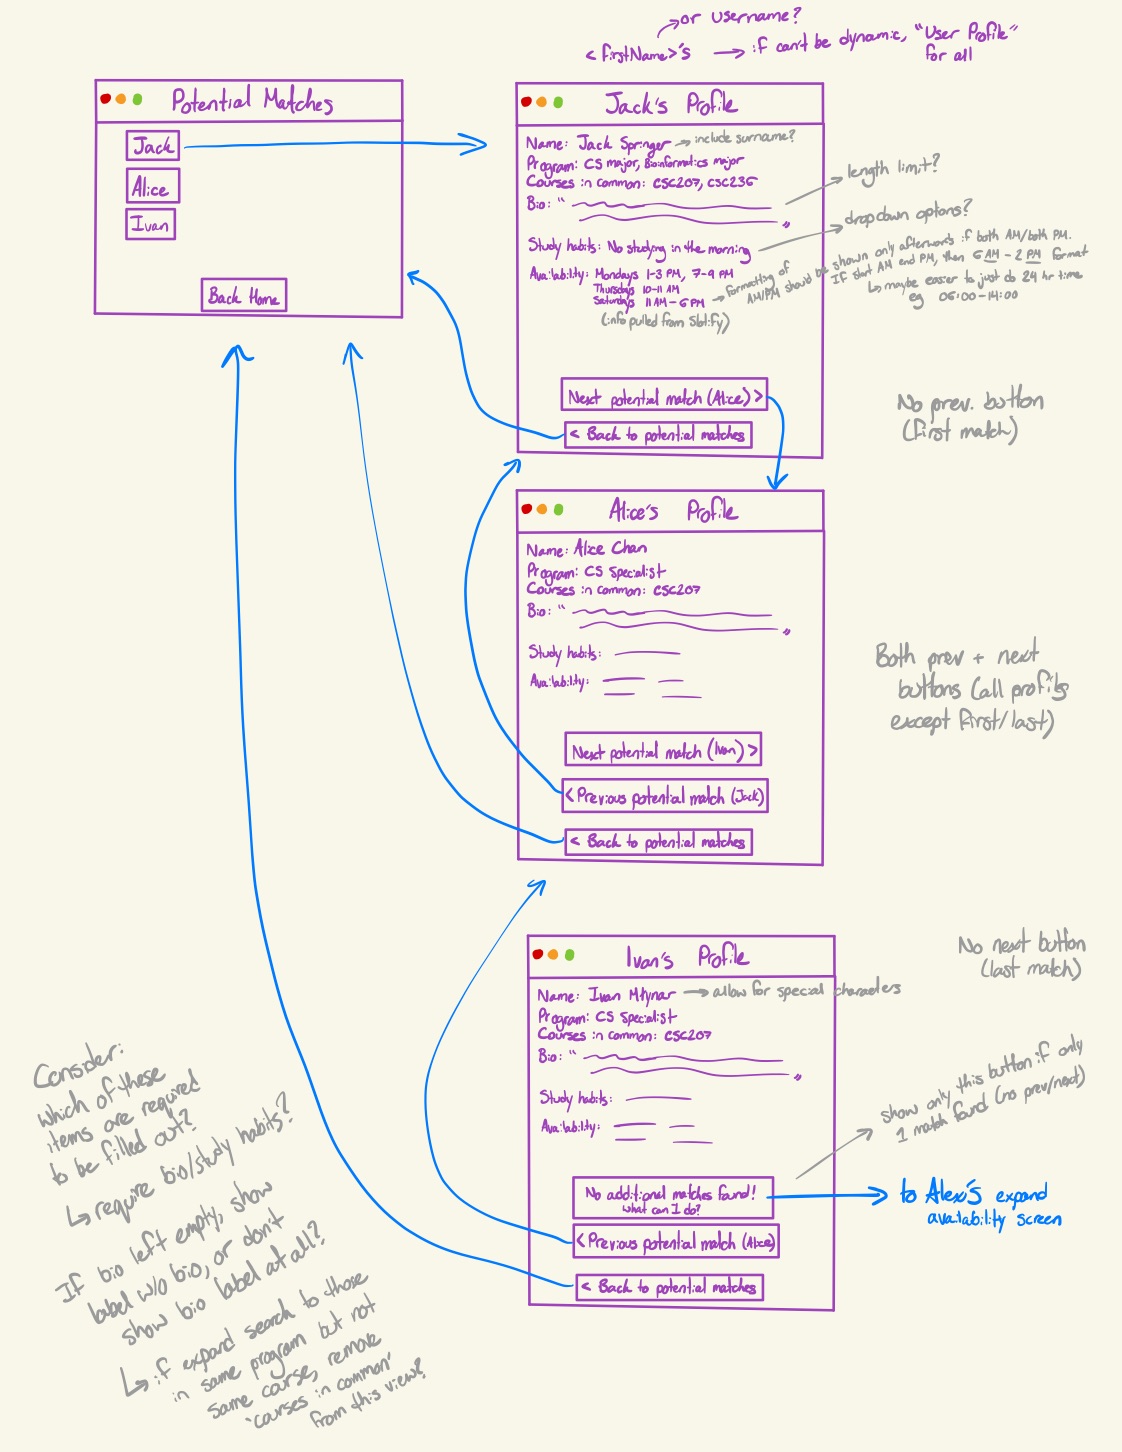 or username?
<firstName>'s → if can't be dynamic, "User Profile"
for all
Potential Matches
Jack
Alice
Ivan
Back Home
Jack's Profile
Name: Jack Springer → include surname?
Program: CS major, Bioinformatics major
Courses in common: CSC207, CSC236
Bio: "
"
length limit?
Study habits: No studying in the morning
dropdown options?
Availability: Mondays 1-3 PM, 7-9 PM
Thursdays 10-11 AM
Saturdays 11 AM - 6 PM →
(info pulled from Slotify)
formatting of
AM/PM should be shown only afterwards if both AM/both PM.
If start AM end PM, then 6 AM - 2 PM format
↳ maybe easier to just do 24 hr time
eg 06:00-14:00
Next potential match (Alice) >
< Back to potential matches
No prev. button
(first match)
Alice's Profile
Name: Alice Chan
Program: CS Specialist
Courses in common: CSC207
Bio: "
"
Study habits:
Availability:
Next potential match (Ivan) >
< Previous potential match (Jack)
< Back to potential matches
Both prev + next
buttons (all profils
except first/last)
Ivan's Profile
Name: Ivan Młynar → allow for special characters
Program: CS Specialist
Courses in common: CSC207
Bio: "
"
Study habits:
Availability:
No additional matches found!
What can I do?
< Previous potential match (Alice)
< Back to potential matches
No next button
(last match)
show only this button if only
1 match found (no prev/next)
to Alex's expand
availability screen
Consider:
which of these
items are required
to be filled out?
↳ require bio/study habits?
If bio left empty, show
label w/o bio, or don't
show bio label at all?
↳ if expand search to those
in same program but not
same course, remove
'courses in common'
from this view?